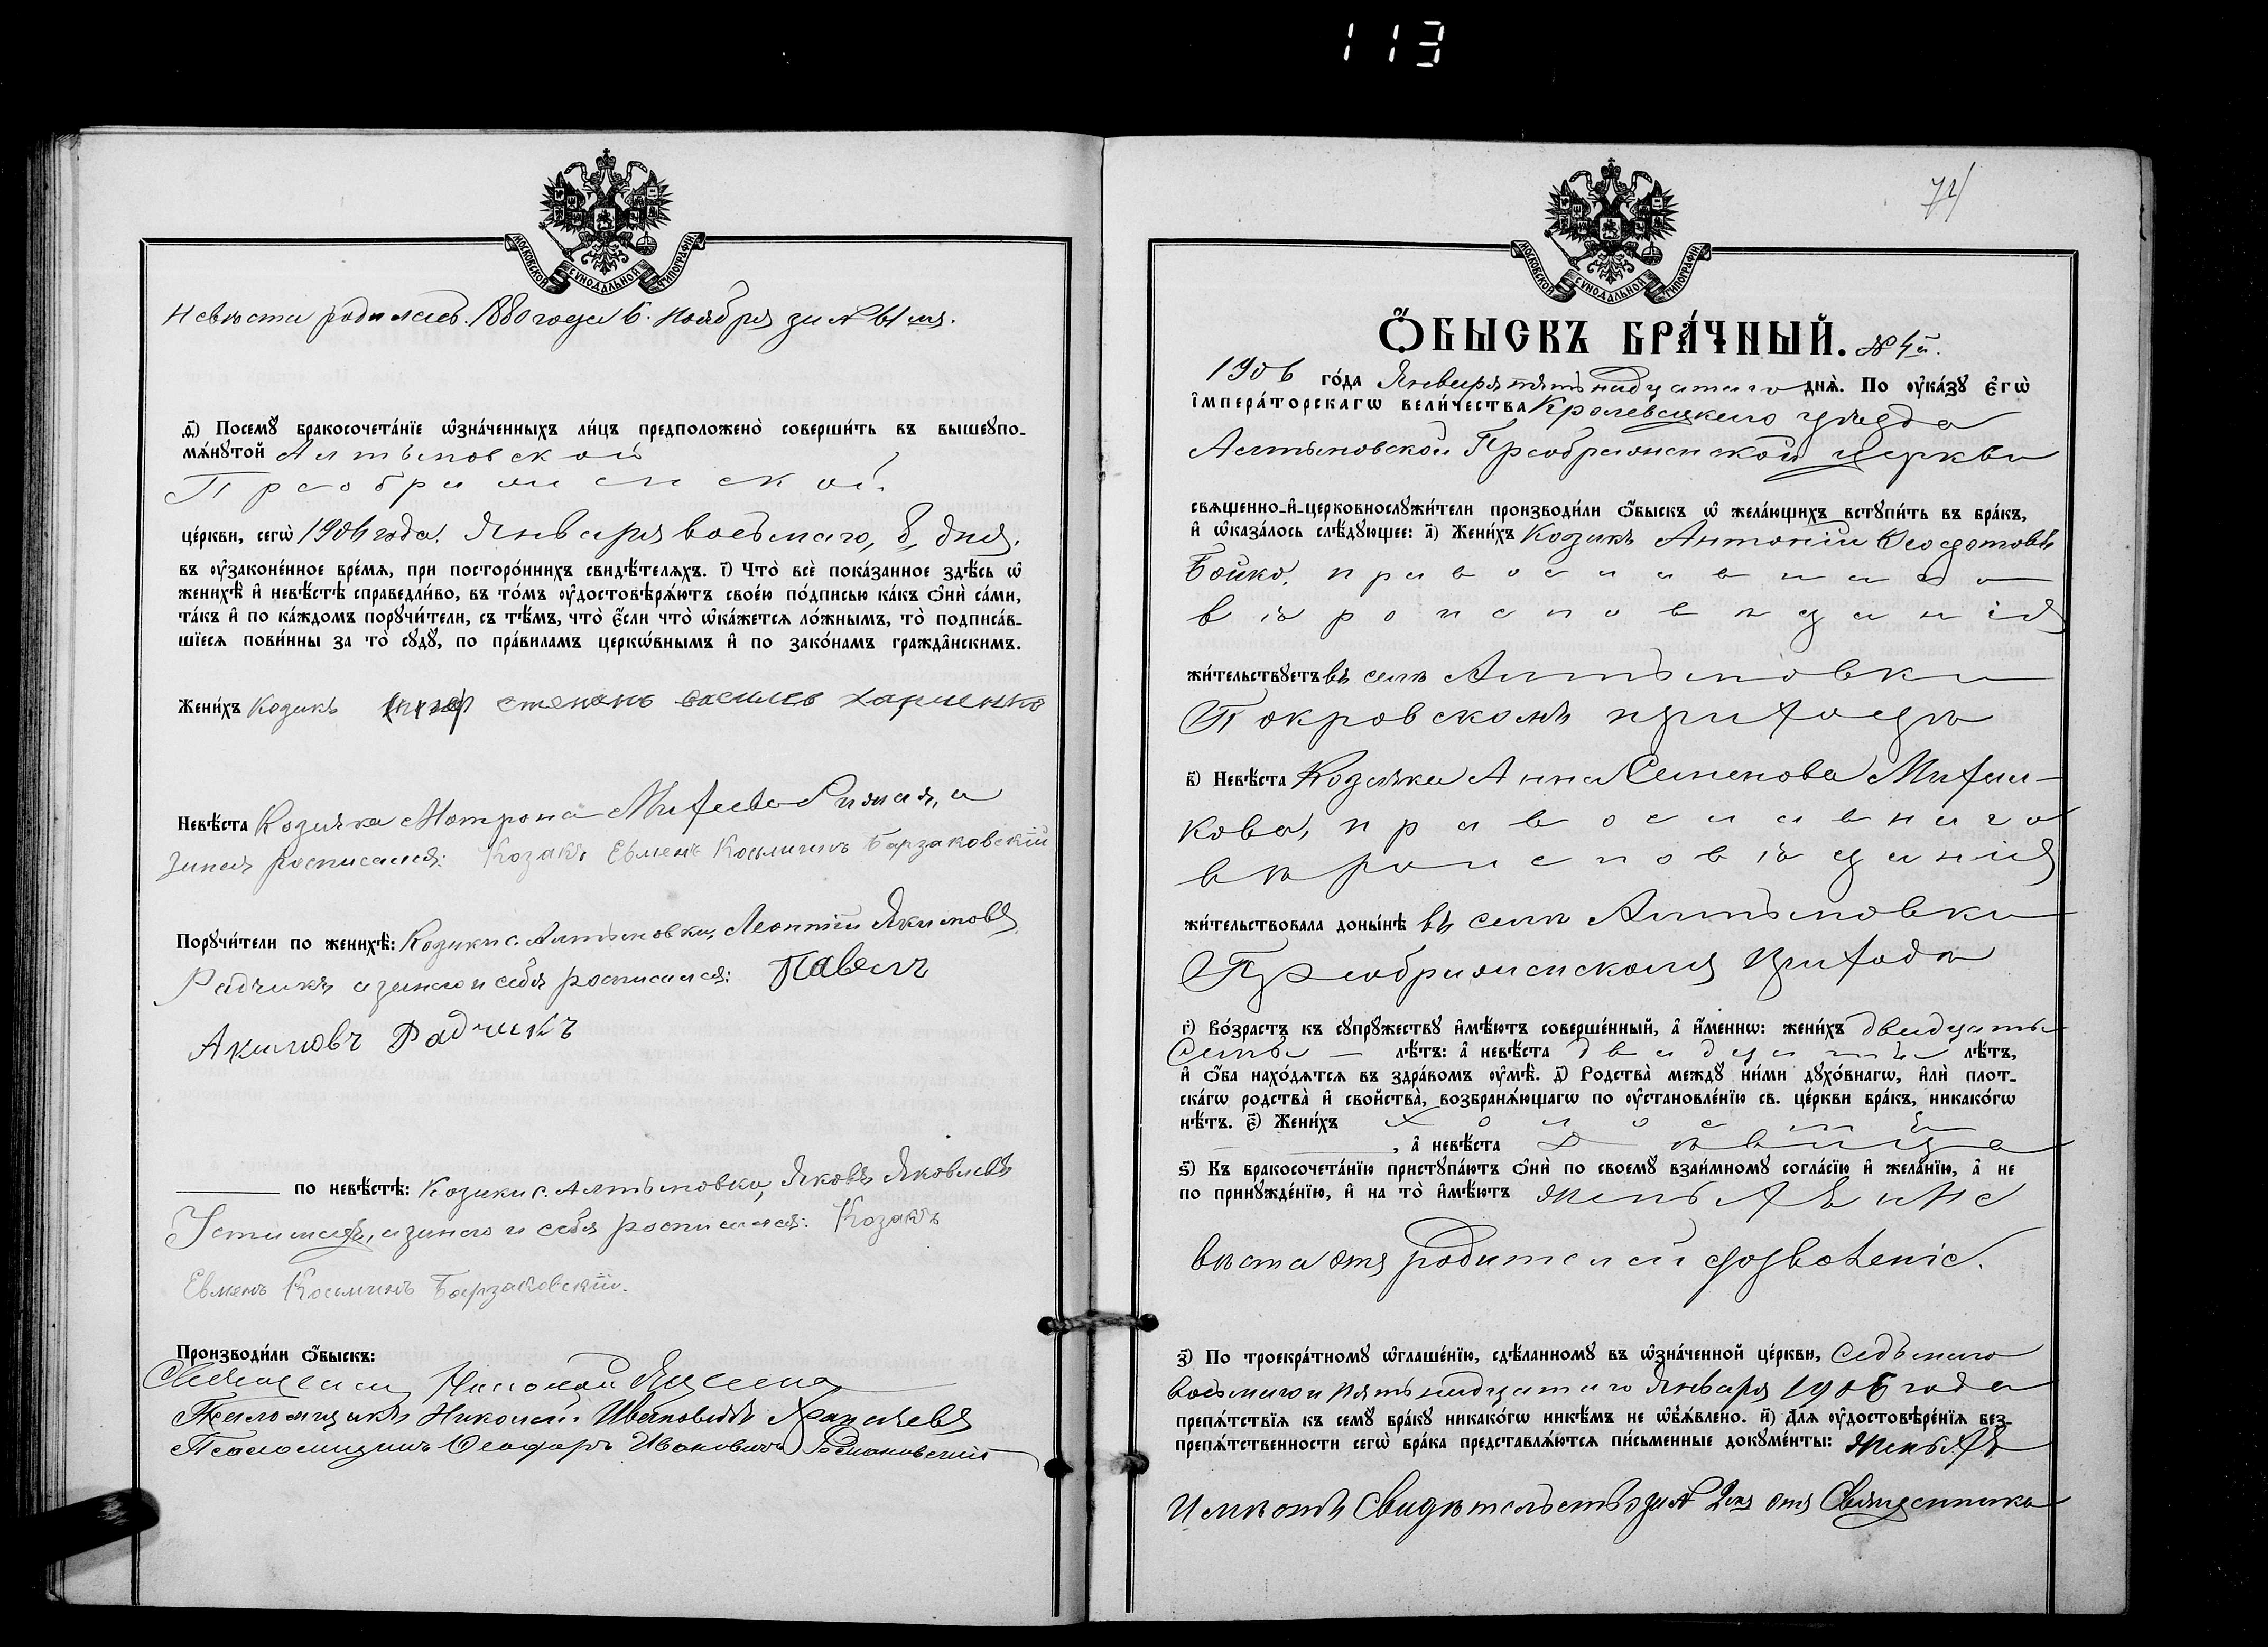 113
МОСКОВСКОЙ СѴНОДАЛЬНОЙ ТИПОГРАФІИ
Невѣста родилась 1880 года 6. Ноября за №
д҃і) Посемꙋ̀ бракосочета́нїе ѡ҆зна́ченныхъ ли́цъ предположено̀ соверши́ть въ вышеꙋпо-
мѧ́нꙋтой Алтыновской
Преображенской
це́ркви, сегѡ̀ 1906 года. Января восьмаго, 8, дня.
въ ᲂу҆законе́нное вре́мѧ, при посторо́ннихъ свидѣ́телѧхъ. і҃) Что̀ всѐ пока́занное здѣ́сь ѡ҆
женихѣ̀ и҆ невѣ́стѣ справедли́во, въ то́мъ ᲂу҆достовѣрѧ́ютъ свое́ю по́дписью ка́къ ѻ҆нѝ са́ми,
та́къ и҆ по ка́ждомъ порꙋчи́тели, съ тѣ́мъ, что̀ є҆́сли что̀ ѡ҆ка́жетсѧ ло́жнымъ, то̀ подписа́в-
шїесѧ пови́нны за то̀ сꙋдꙋ̀, по пра́виламъ церкѡ́внымъ и҆ по зако́намъ гражда̂нскимъ.
Жени́хъ Козакъ степанъ василев харченко
Невѣ́ста Козачка Мотрона Михеева, а
за нея росписался: Козакъ Евменъ Косьминъ Барзаковскій
Порꙋчи́тели по женихѣ̀: Козаки с. Алтыновки, Леонтій Якимовъ
Радчикъ а за него и себя росписался: Павелъ
Акимовъ Радчикъ
по невѣ́стѣ: Козаки с. Алтыновки, Яковъ Яковлевъ
а за него и себя росписался: Козакъ
Евменъ Косьминъ Барзаковскій.
Производи́ли ѻ҆́быскъ:
Священникъ Николай
Псаломщикъ Николай Ивановичъ
Псаломщикъ Ѳеодоръ Ивановичъ
74
МОСКОВСКОЙ СѴНОДАЛЬНОЙ ТИПОГРАФІИ
Ѻ҆́БЫСКЪ БРА́ЧНЫЙ. № 4й.
1906 го́да Января пятьнадцатаго днѧ̀. По ᲂу҆ка́зꙋ є҆гѡ̀
і҆мпера́торскагѡ вели́чества Кролевецкаго уѣзда
Алтыновской Преображенской церкви
свѧщенно-и҆-церковнослꙋжи́тели производи́ли ѻ҆́быскъ ѡ҆ жела́ющихъ встꙋпи́ть въ бра́къ,
и҆ ѡ҆каза́лось слѣ́дꙋющее: а҃) Жени́хъ Козакъ Антоній Ѳеодотовъ
Бойко, православнаго
вѣроисповѣданія
жи́тельствꙋетъ въ селѣ Алтыновки
Покровскомъ приходѣ
в҃) Невѣ́ста Козачка Анна Семенова Михал-
кова, православнаго
вѣроисповѣданія
жи́тельствовала доны́нѣ въ селѣ Алтыновки
Преображенскомъ приходѣ
г҃) Во́зрастъ къ сꙋпрꙋ́жествꙋ и҆мѣ́ютъ соверше́нный, а҆ и҆́меннѡ: жени́хъ двадцать
семь лѣ́тъ: а҆ невѣ́ста двадцать лѣ́тъ,
и҆ ѻ҆́ба нахо́дѧтсѧ въ здра́вомъ ᲂу҆мѣ̀. д҃) Родства̀ междꙋ̀ ни́ми дꙋхо́внагѡ, и҆лѝ плот-
ска́гѡ родства̀ и҆ свойства̀, возбранѧ́ющагѡ по ᲂу҆становле́нїю св. це́ркви бра́къ, никако́гѡ
нѣ́тъ. є҃) Жени́хъ холостъ
, а҆ невѣ́ста дѣвица
ѕ҃) Къ бракосочета́нїю пристꙋпа́ютъ ѻ҆нѝ по своемꙋ̀ взаи́мномꙋ согла́сїю и҆ жела́нїю, а҆ не
по принꙋжде́нїю, и҆ на то̀ и҆мѣ́ютъ женихъ и не
вѣста отъ родителей дозволеніе.
з҃) По троекра́тномꙋ ѡ҆глаше́нїю, сдѣ́ланномꙋ въ ѡ҆зна́ченной це́ркви, седьмаго
восьмаго и пятьнадцатаго Января 1906 года
препѧ́тствїѧ къ семꙋ̀ бра́кꙋ никако́гѡ никѣ́мъ не ѡ҆б̾ѧ́влено. и҃) Длѧ̀ ᲂу҆достовѣре́нїѧ без-
препѧ́тственности сегѡ̀ бра́ка представлѧ́ютсѧ пи́сьменные докꙋме́нты: женихъ
имѣетъ Свидѣтельство за № 2мъ отъ Священника